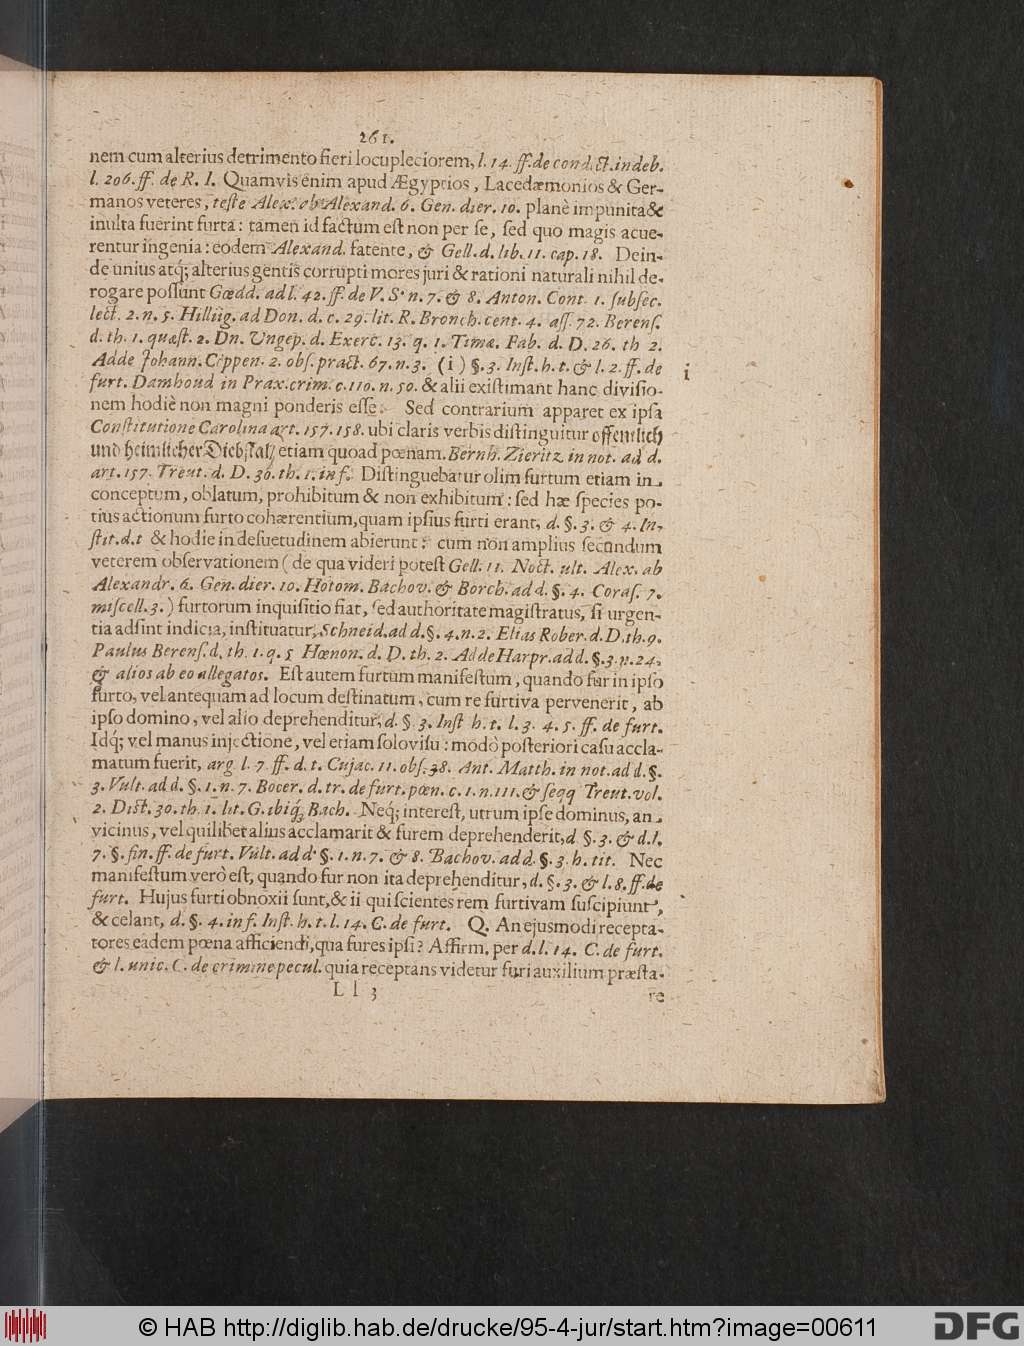 261.
nem cum alterius detrimento fieri locupleciorem, l. 14. ff. de condict. indeb.
l. 206. ff. de R. I. Quamvis enim apud Ægyptios, Lacedæmonios & Ger-
manos veteres, teste Alex. ab Alexand. 6. Gen. dier. 10. planè impunita &
inulta fuerint furta: tamen id factum est non per se, sed quo magis acue-
rentur ingenia: eodem Alexand. fatente, & Gell. d. lib. 11. cap. 18. Dein-
de unius atq; alterius gentis corrupti mores juri & rationi naturali nihil de-
rogare possunt Gœdd. ad l. 42. ff. de V. S. n. 7. & 8. Anton. Cont. 1. subsec.
lect. 2. n. 5. Hillüg. ad Don. d. c. 29. lit. R. Bronch. cent. 4. ass. 72. Berens.
d. th. 1. quæst. 2. Dn. Ungep. d. Exerc. 13. q. 1. Timæ. Fab. d. D. 26. th 2.
Adde Johann. Cöppen. 2. obs. pract. 67. n. 3. (i) §. 3. Inst. h. t. & l. 2. ff. de
i
furt. Damhoud in Prax. crim. c. 110. n. 50. & alii existimant hanc divisio-
nem hodiè non magni ponderis esse. Sed contrarium apparet ex ipsa
Constitutione Carolina art. 157. 158. ubi claris verbis distinguitur offentlich
und heimlicher Diebstal, etiam quoad pœnam. Bernh. Zieritz in not. ad d.
art. 157. Treut. d. D. 30. th. 1. inf. Distinguebatur olim furtum etiam in
conceptum, oblatum, prohibitum & non exhibitum: sed hæ species po-
tius actionum furto cohærentium, quam ipsius furti erant, d. §. 3. & 4. In-
stit. d. t & hodie in desuetudinem abierunt: cum non amplius secundum
veterem observationem (de qua videri potest Gell. 11. Noct. ult. Alex. ab
Alexandr. 6. Gen. dier. 10. Hotom. Bachov. & Borch. ad d. §. 4. Coras. 7.
miscell. 3.) furtorum inquisitio fiat, sed authoritate magistratus, si urgen-
tia adsint indicia, instituatur, Schneid. ad d. §. 4. n. 2. Elias Rober. d. D. th. 9.
Paulus Berens. d. th. 1. q. 5 Hœnon. d. D. th. 2. Adde Harpr. ad d. §. 3. n. 24.
& alios ab eo allegatos. Est autem furtum manifestum, quando fur in ipso
furto, vel antequam ad locum destinatum, cum re furtiva pervenerit, ab
ipso domino, vel alio deprehenditur, d. §. 3. Inst h. t. l. 3. 4. 5. ff. de furt.
Idq; vel manus injectione, vel etiam solo visu: modò posteriori casu accla-
matum fuerit, arg. l. 7. ff. d. t. Cujac. 11. obs. 38. Ant. Matth. in not. ad d. §.
3. Vult. ad d. §. 1. n. 7. Bocer. d. tr. de furt. pœn. c. 1. n. 111. & seqq Treut. vol.
2. Disct. 30. th. 1. lit. G. ibiq; Bach. Neq; interest, utrum ipse dominus, an
vicinus, vel quilibet alius acclamarit & furem deprehenderit, d §. 3. & d. l.
7. §. fin. ff. de furt. Vult. ad d. §. 1. n. 7. & 8. Bachov. ad d. §. 3. h. tit. Nec
manifestum verò est, quando fur non ita deprehenditur, d. §. 3. & l. 8. ff. de
furt. Hujus furti obnoxii sunt, & ii qui scientes rem furtivam suscipiunt,
& celant, d. §. 4. inf. Inst. h. t. l. 14. C. de furt. Q. An ejusmodi recepta-
tores eadem pœna afficiendi, qua fures ipsi? Affirm. per d. l. 14. C. de furt.
& l. unic. C. de crimine pecul. quia receptans videtur furi auxilium præsta-
L l 3
re
© HAB http://diglib.hab.de/drucke/95-4-jur/start.htm?image=00611
DFG